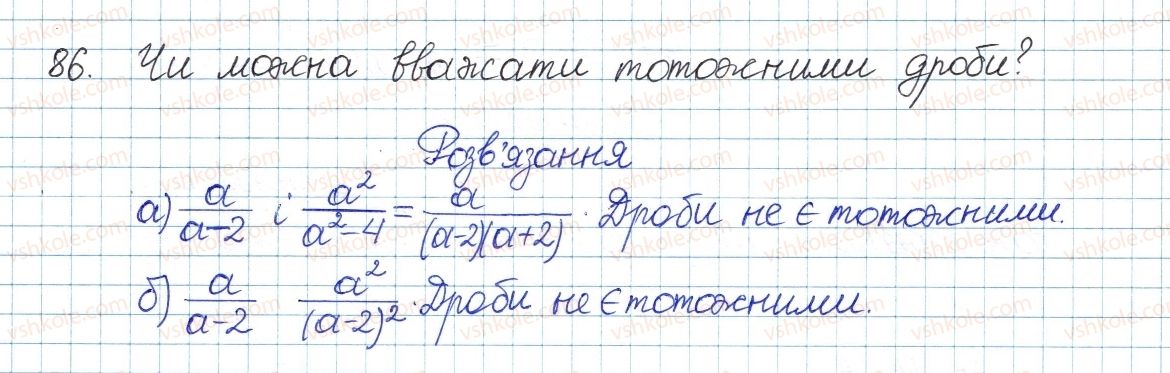 86. Чи можна вважати тотожними дроби?
Розв'язання
а) a/(a-2) і a²/(a²-4) = a/((a-2)(a+2)). Дроби не є тотожними.
б) a/(a-2) a²/(a-2)². Дроби не є тотожними.